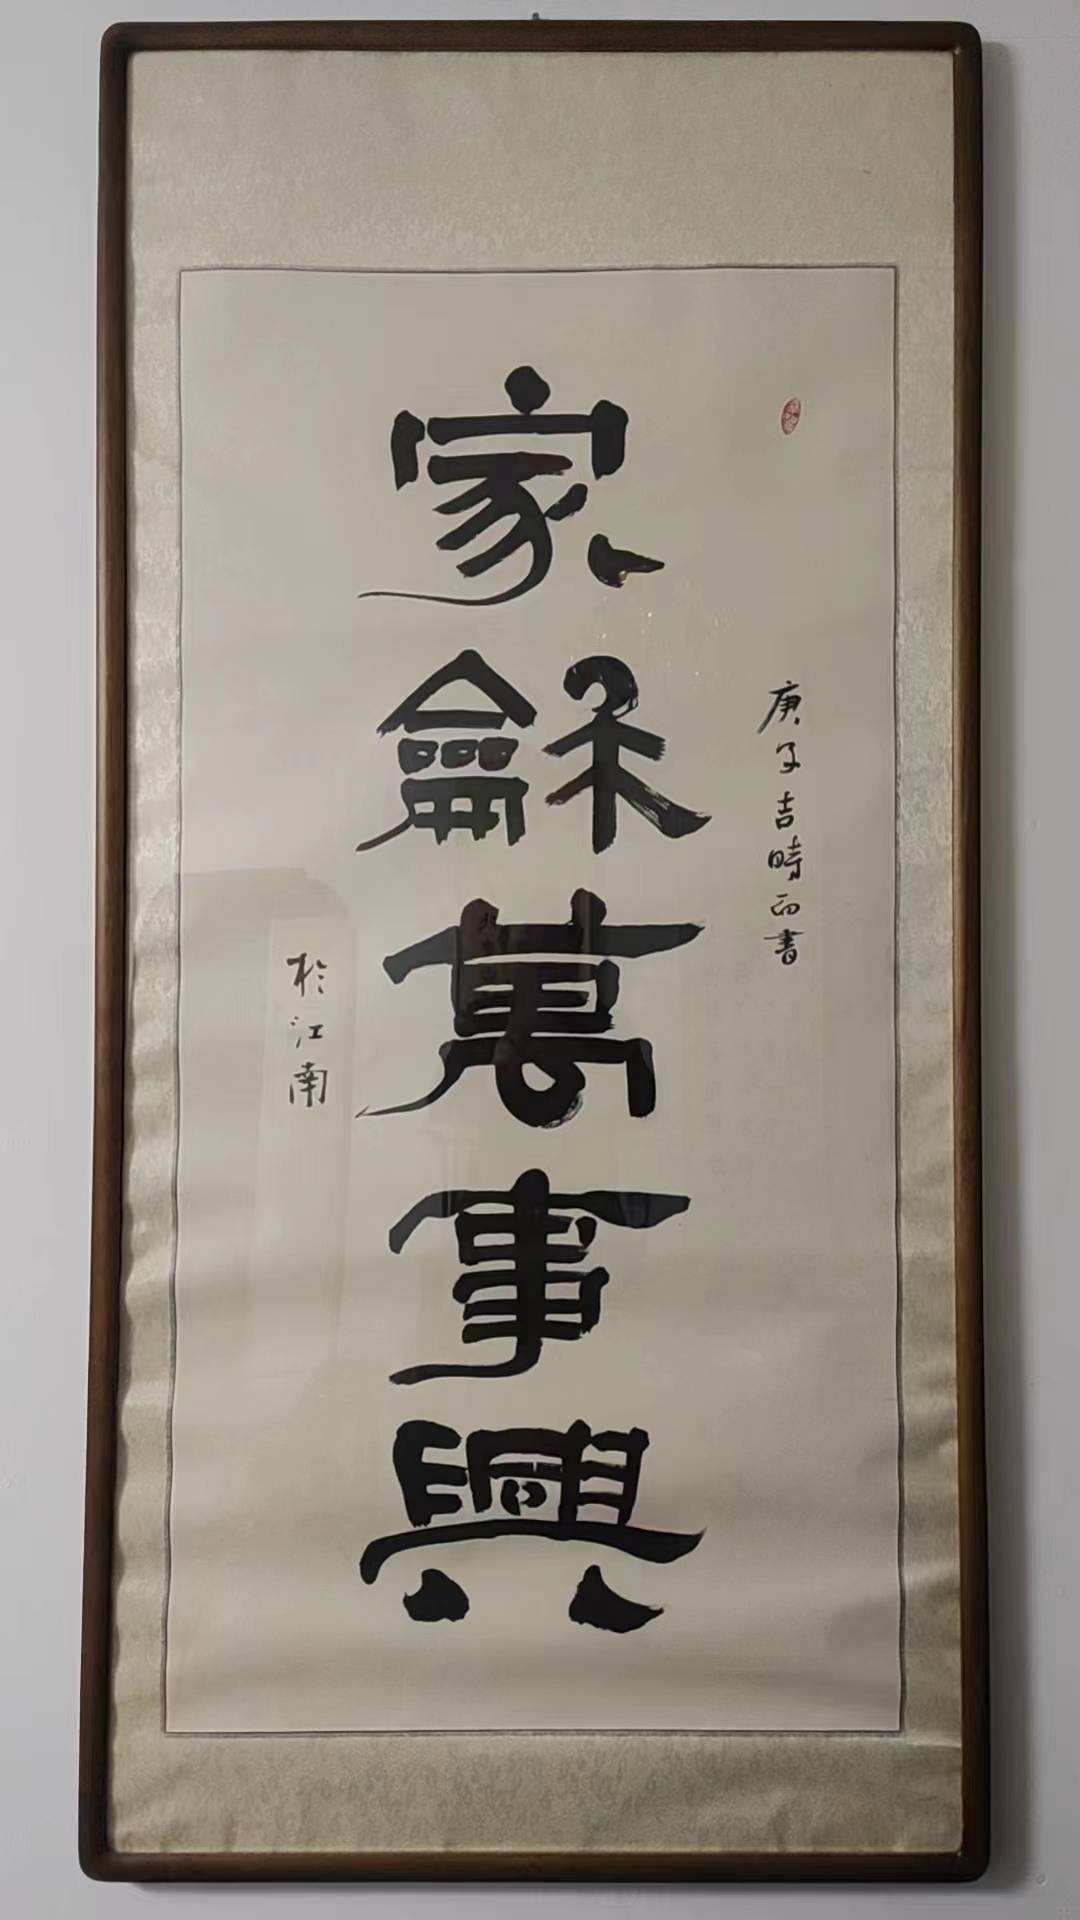 庚子吉時西書
家龢萬事興
於江南